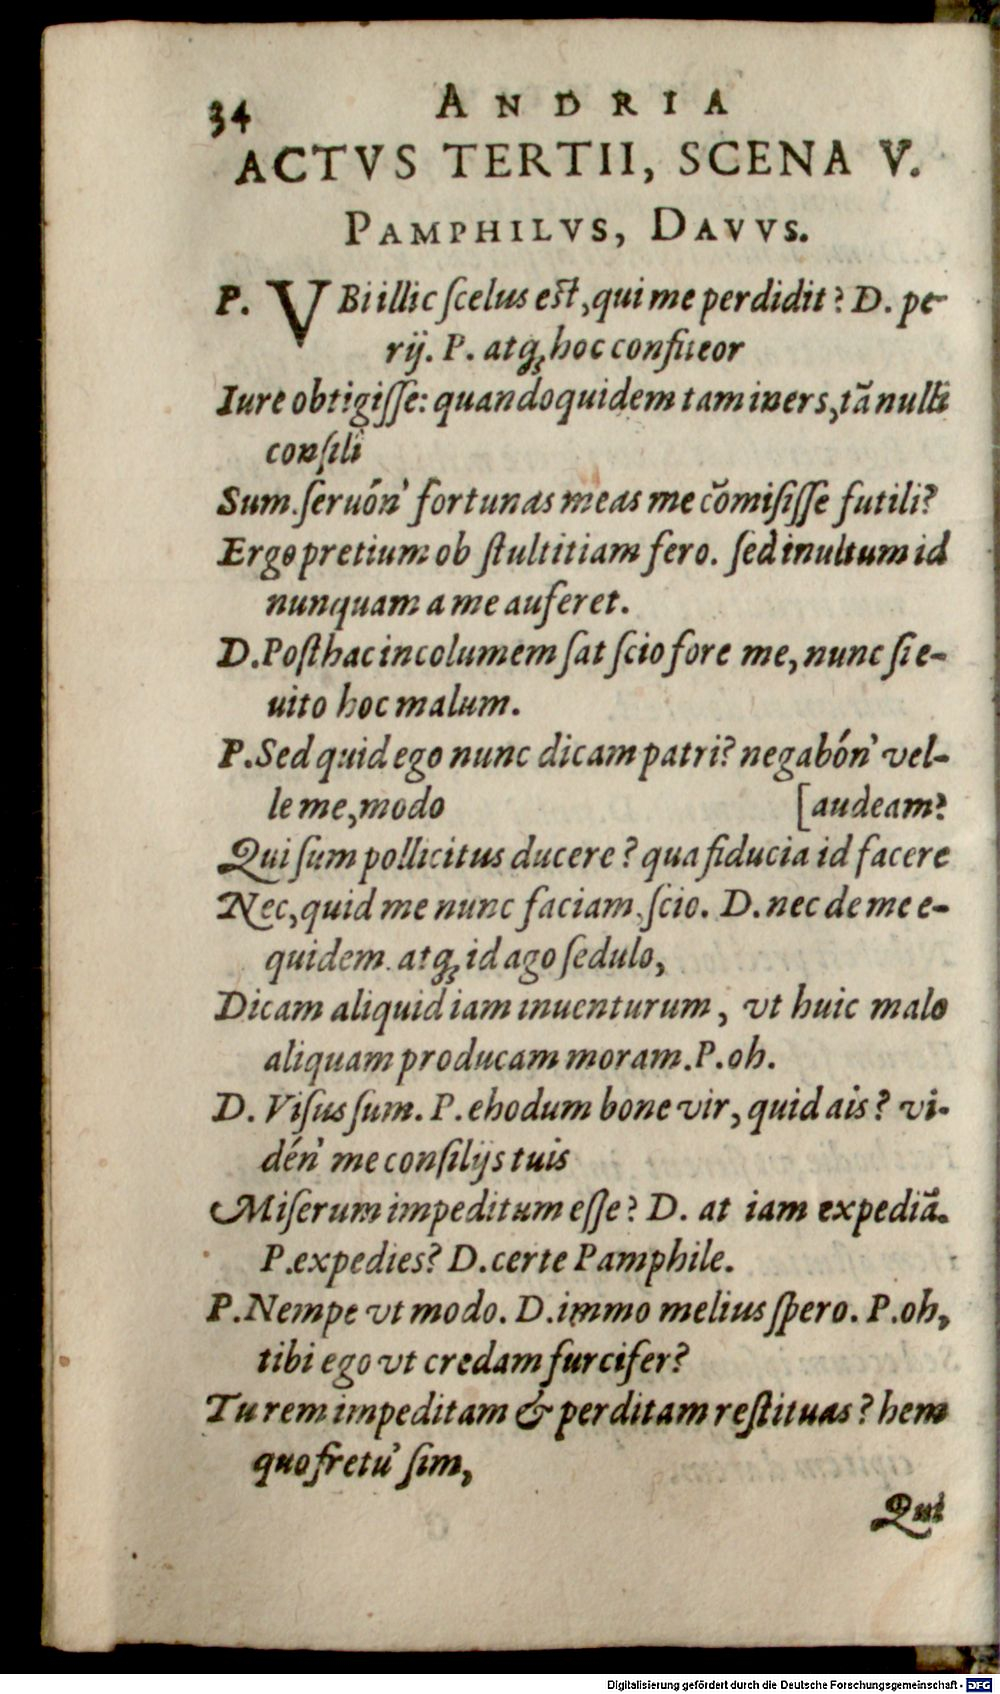 34 ANDRIA
ACTVS TERTII, SCENA V.
PAMPHILVS, DAVVS.
P. VBi illic ſcelus eſt, qui me perdidit? D. pe-
rij. P. atq; hoc confiteor
Iure obtigiſſe: quandoquidem tam iners, tā nulli
conſilî
Sum. ſeruón' fortunas meas me cōmiſiſſe futili?
Ergo pretium ob ſtultitiam fero. ſed inultum id
nunquam a me auferet.
D. Poſthac incolumem ſat ſcio fore me, nunc ſi e-
uito hoc malum.
P. Sed quid ego nunc dicam patri? negabón' vel-
le me, modo [audeam?
Qui ſum pollicitus ducere? qua fiducia id facere
Nec, quid me nunc faciam, ſcio. D. nec de me e-
quidem. atq; id ago ſedulo,
Dicam aliquid iam inuenturum, vt huic malo
aliquam producam moram. P. oh.
D. Viſus ſum. P. ehodum bone vir, quid ais? vi-
dén' me conſilijs tuis
Miſerum impeditum eſſe? D. at iam expediā.
P. expedies? D. certe Pamphile.
P. Nempe vt modo. D. immo melius ſpero. P. oh,
tibi ego vt credam furcifer?
Tu rem impeditam & perditam reſtituas? hem
quo fretu' ſim,
Qui
Digitalisierung gefördert durch die Deutsche Forschungsgemeinschaft - DFG